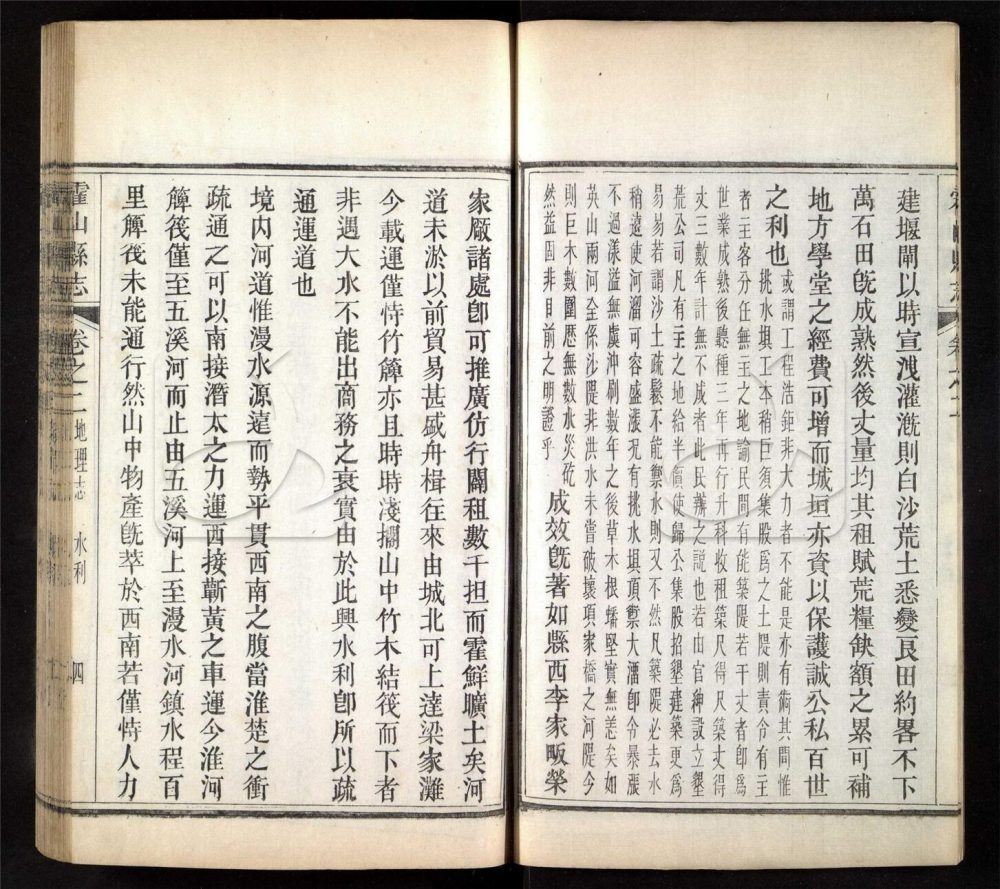 建堰閘以時宣洩灌漑則白沙荒土悉變良田約畧不下
萬石田旣成熟然後丈量均其租賦荒糧缺額之累可補
地方學堂之經費可增而城垣亦資以保護誠公私百世
之利也
或謂工程浩鉅非大力者不能是亦有術其間惟
挑水埧工本稍巨須集股爲之土隄則責令有主
者主客分任無主之地諭民間有能築隄若干丈者卽爲
世業成熟後聽種三年再行升科收租築尺得尺築丈得
丈三數年計無不成者此民辦之說也若由官紳設立墾
荒公司凡有主之地給半價使歸公集股招墾建築更爲
易易若謂沙土疏鬆不能禦水則又不然凡築隄必去水
稍遠使河溜可容盛漲況有挑水埧頂禦大溜卽令暴漲
不過漾溢無虞沖刷數年之後草木根蟠堅實無恙矣如
英山兩河全係沙隄非洪水未嘗破壞項家橋之河隄今
則巨木數圍歷無數水災矻
然益固非目前之明證乎
成效旣著如縣西李家畈榮
家厰諸處卽可推廣仿行闢租數千担而霍鮮曠土矣河
道未淤以前貿易甚盛舟楫往來由城北可上達梁家灘
今載運僅恃竹簰亦且時時淺擱山中竹木結筏而下者
非遇大水不能出商務之衰實由於此興水利卽所以疏
通運道也
境内河道惟漫水源遠而勢平貫西南之腹當淮楚之衝
疏通之可以南接潛太之力運西接蘄黃之車運今淮河
簰筏僅至五溪河而止由五溪河上至漫水河鎮水程百
里簰筏未能通行然山中物產旣萃於西南若僅恃人力
霍山縣志
卷之二
地理志 水利
四